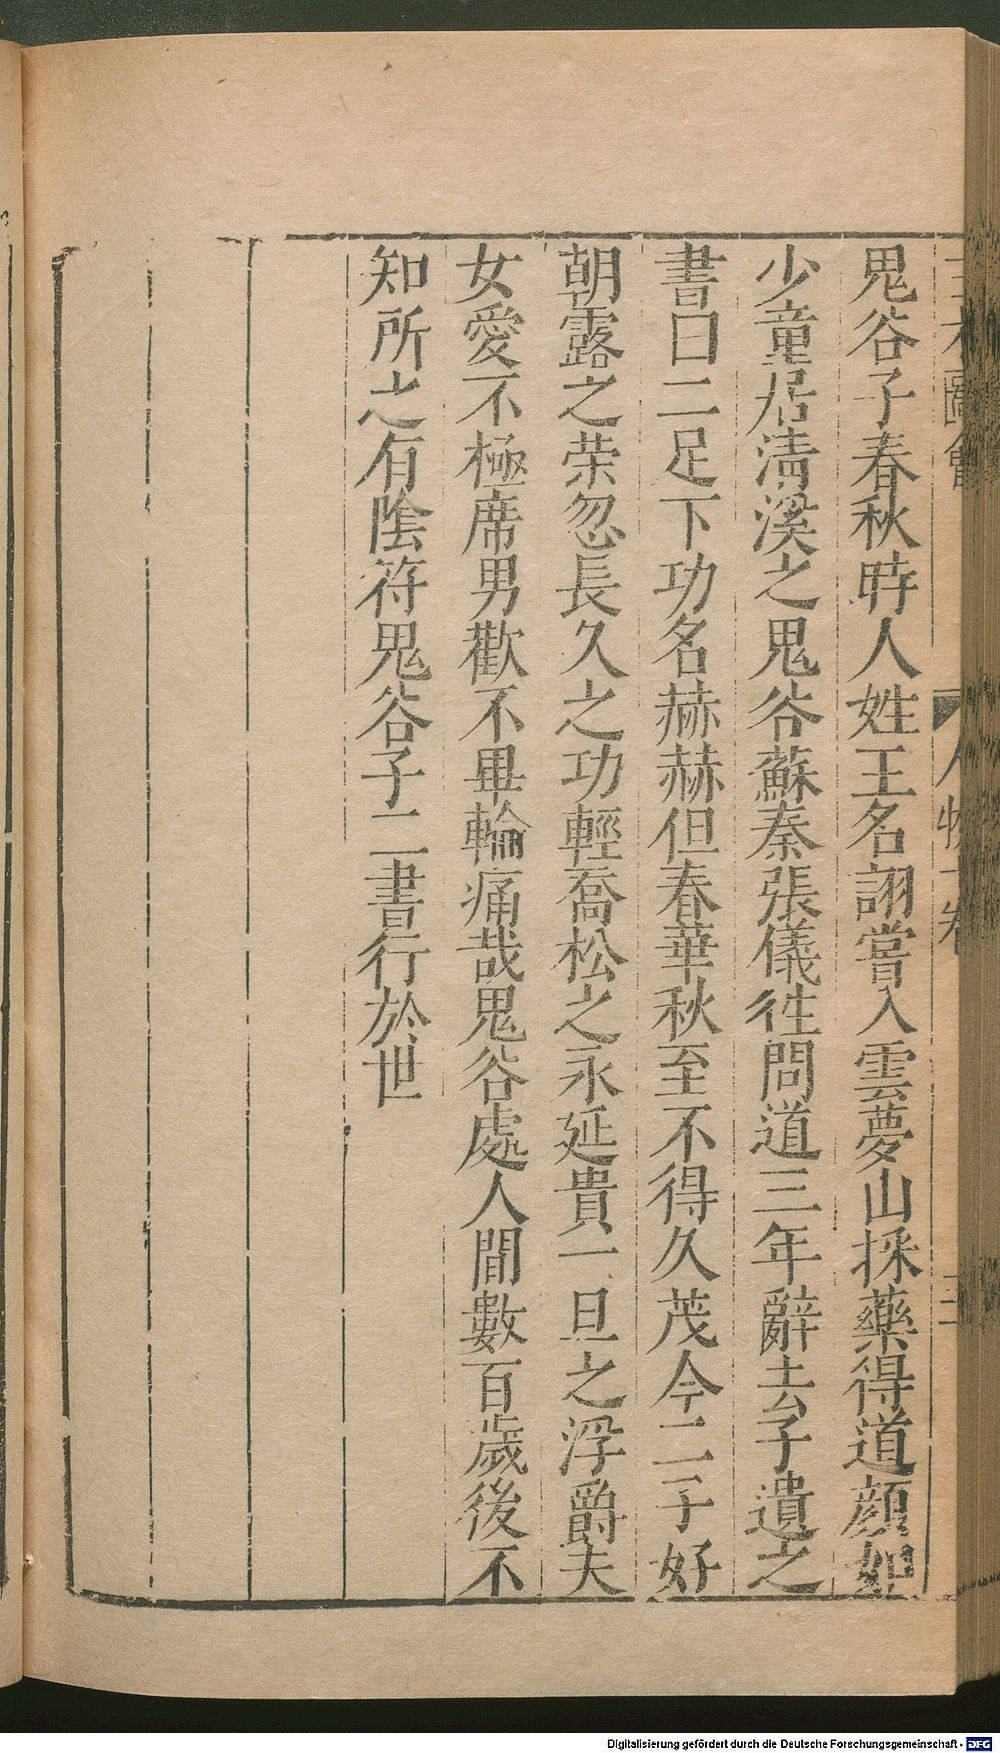 三才圖會 人物十卷 三
鬼谷子春秋時人姓王名詡嘗入雲夢山採藥得道顏如
少童居清溪之鬼谷蘇秦張儀徃問道三年辭去子遺之
書曰二足下功名赫赫但春華秋至不得久茂今二子好
朝露之荣忽長久之功輕喬松之永延貴一旦之浮爵夫
女愛不極席男歡不畢輪痛哉鬼谷處人間數百歲後不
知所之有陰符鬼谷子二書行於世
Digitalisierung gefördert durch die Deutsche Forschungsgemeinschaft - DFG